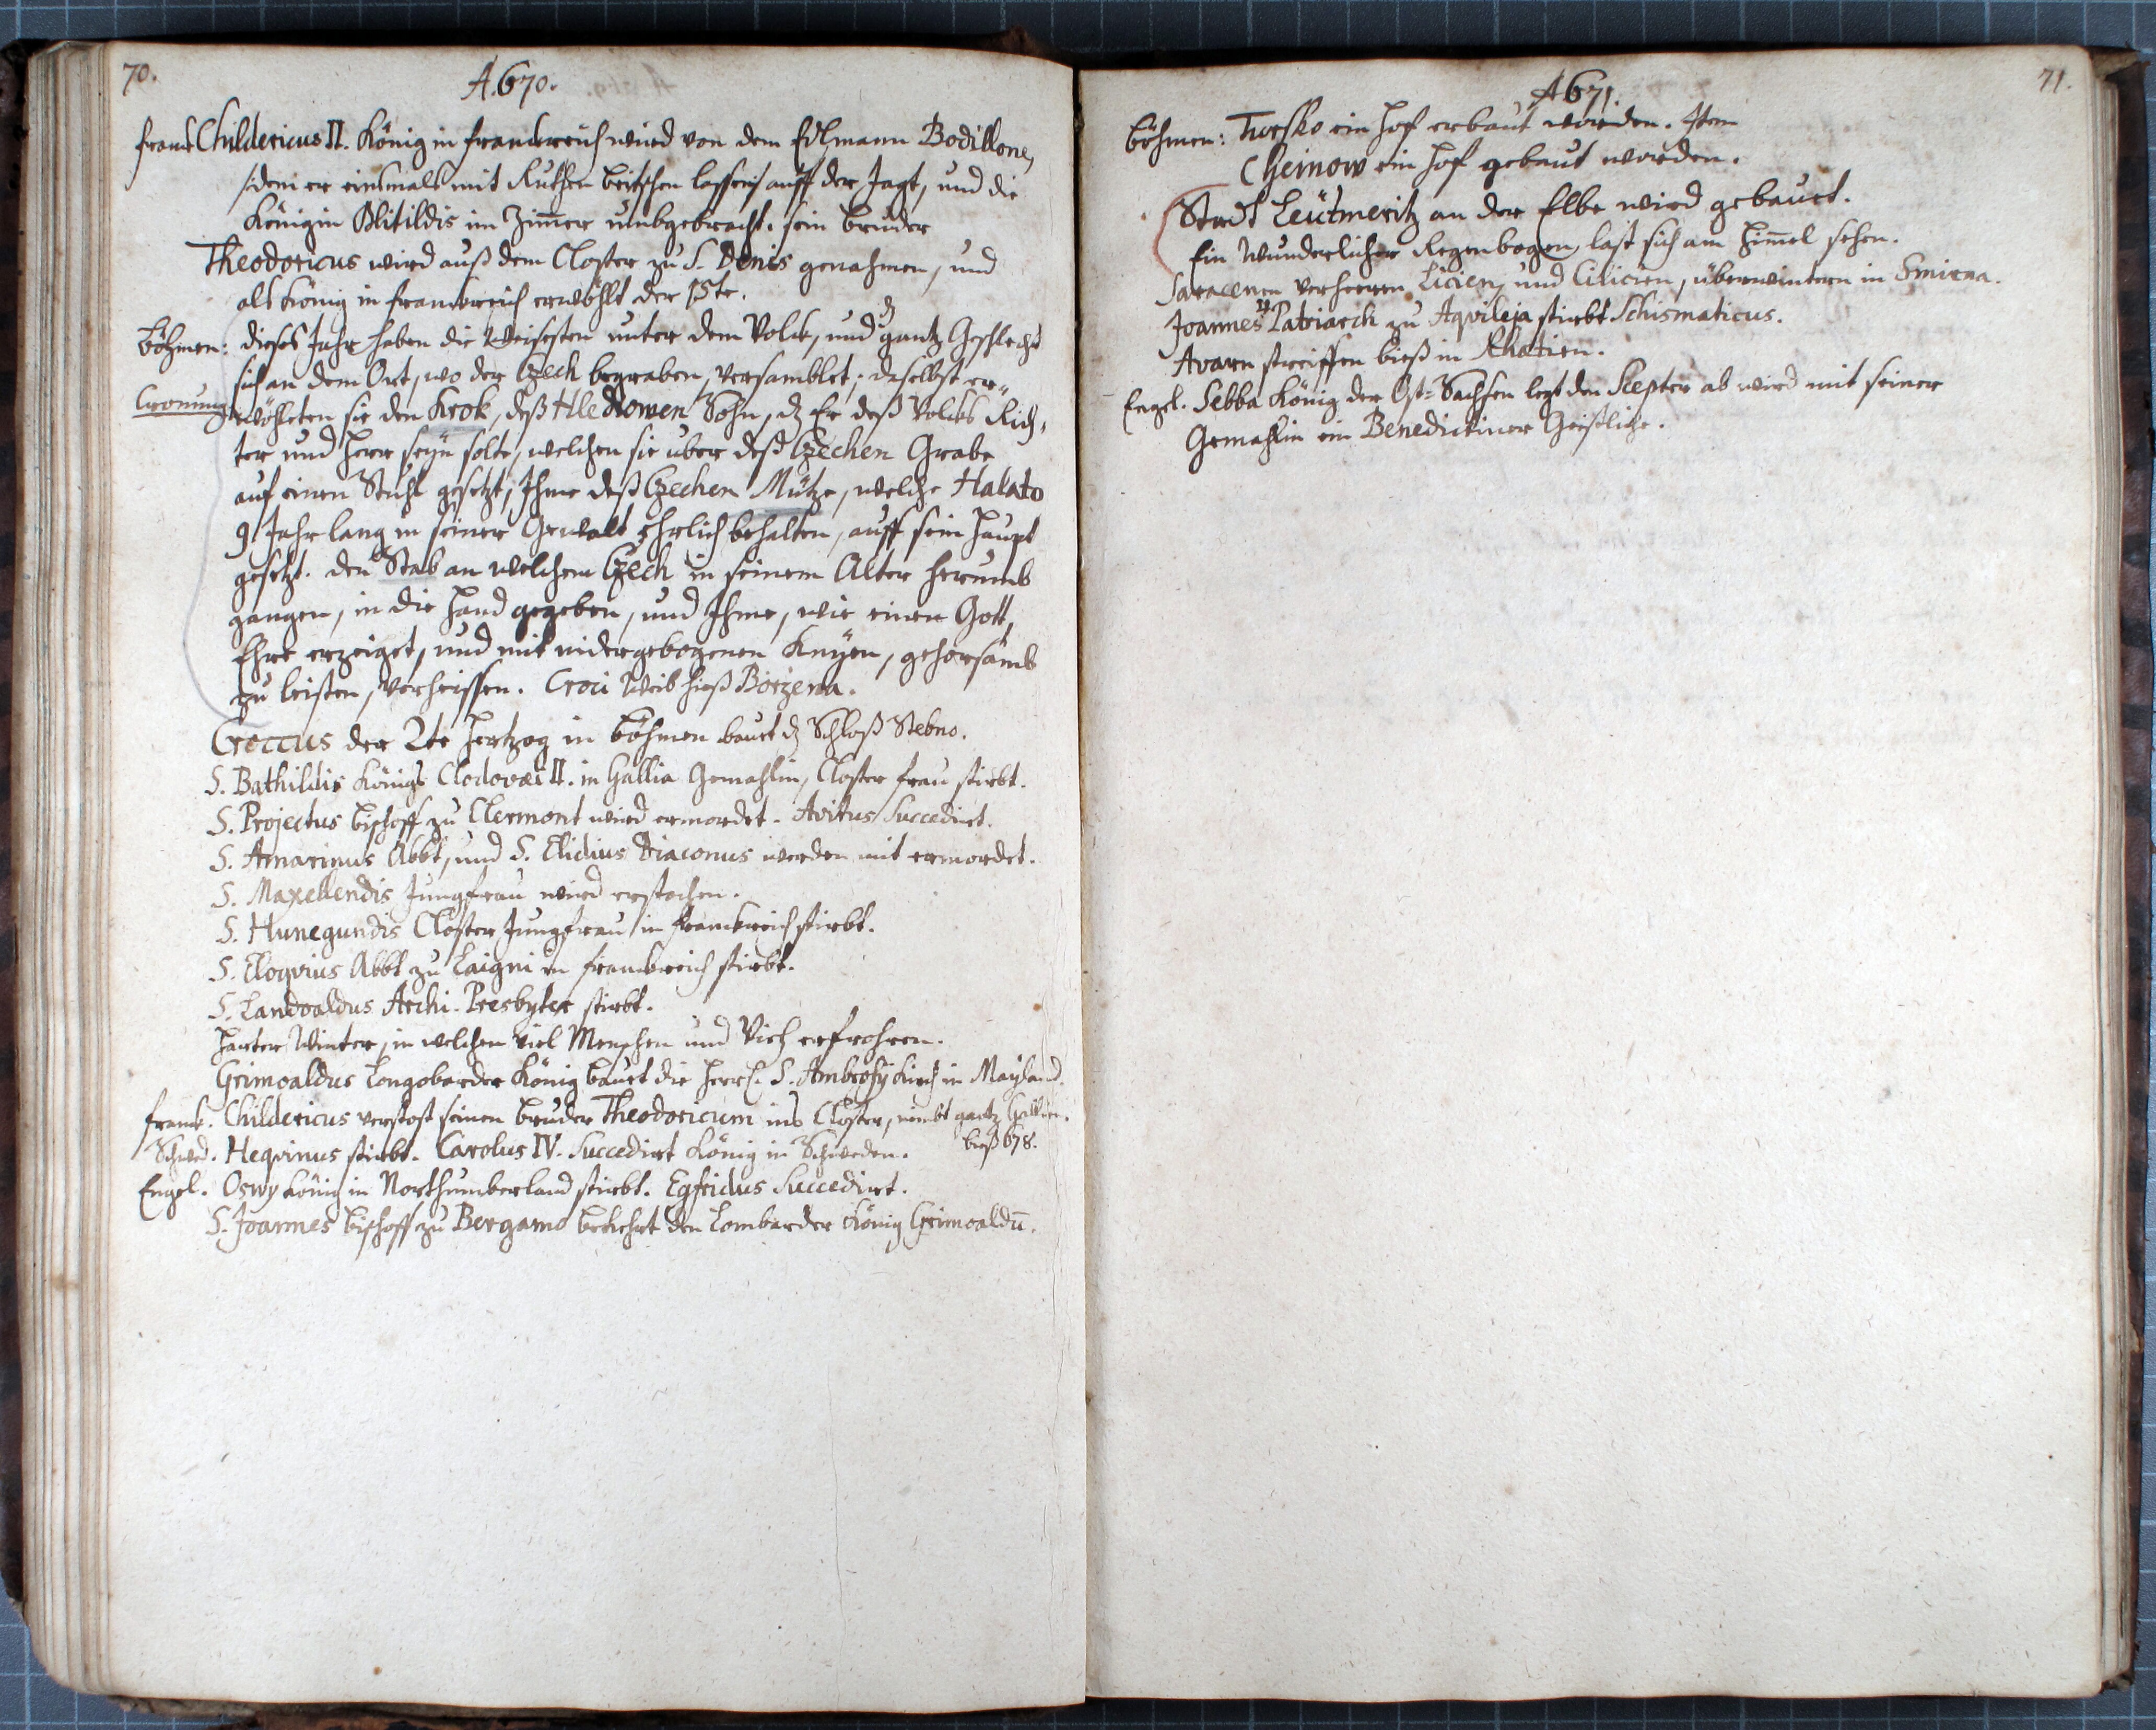 70.
A. 670.
Franck Childericus II. König in Franckreich wird von dem Edlmann Bodillone,
/:dem er einsmals mit Ruthen beitschen lassen:/ auff der Jagt, und die
Königin Blitildis im Zimer umbgebracht. sein bruder
Theodoricus wird auß dem Closter zu S. Denis genohmen, und
als König in Franckreich erwöhlt der 15te.
Böhmen: dieses Jahr haben die Weisesten unter dem Volck, und dz gantz Geschlecht
sich an dem Ort, wo der Czech begraben, versamblet; daselbst er-
Cronung wöhleten sie den Krok, deß Sohn, dz Er deß Volcks Rich-
ter und Herr seyn solte, welchen sie uber deß Czechen Grabe
auf einen Stuhl gesetzt, Ihme deß Czechen Mütze, welche Halato
9 Jahr lang in seiner Gewalt Ehrlich behalten, auff sein Haupt
gesetzt. den Stab an welchem Czech in seinem Alter herumb
gangen, in die Hand gegeben, und Ihme, wie einen Gott,
Ehre erzeiget, und mit nidergebogenen Knyen, gehorsamb
zu leisten, verheissen. Croci Weib hieß Borzena.
Croccus der 2te Hertzog in Böhmen bauet dz Schloß Stebno.
S. Bathildis Königs Clodovæi II. in Gallia Gemahlin, Closter frau stirbt.
S. Projectus bischoff zu Clermont wird ermordet. Avitus Succedirt.
S. Amarinus Abbt, und S. Elidius Diaconus werden mit ermordet.
S. Maxellendis Jungfrau wird erstochen.
S. Hunegundis Closter Jungfrau in Franckreich stirbt.
S. Eloqvius Abbt zu Laigni in Franckreich stirbt.
S. Landoaldus Archi-Presbyter stirbt.
Harter Winter, in welchem viel Menschen und Vieh erfrohren.
Grimoaldus Longobarder König bauet die S. Ambrosij Kirch in Mayland.
Franck. Childericus verstost seinen bruder Theodoricum ins Closter, nimbt gantz Gallien.
Schwed. Heqvinus stirbt. Carolus IV. Succedirt König in Schweden. bieß 678.
Engel. Oswy König in Northumberland stirbt. Egfridus Succedirt.
S. Joannes bischoff zu Bergamo bekehrt den Lombarder König Grimoaldū.
71.
A 671.
Böhmen: Twrsko ein Hof erbaut worden. Item
Cheinow ein Hof gebaut worden.
Stadt Leütmeritz an der Elbe wird gebauet.
Ein Wunderlicher Regenbogen last sich am Himel sehen.
Saracenen verheeren Licien, und Cilicien, überwintern in Smirna.
Joannes II Patriarch zu Aqvileja stirbt Schismaticus.
Avarn streiffen bieß in Rhætien.
Engel. Sebba König der Ost-Sachsen legt den Scepter ab wird mit seiner
Gemahlin ein Benedictiner Geistliche.